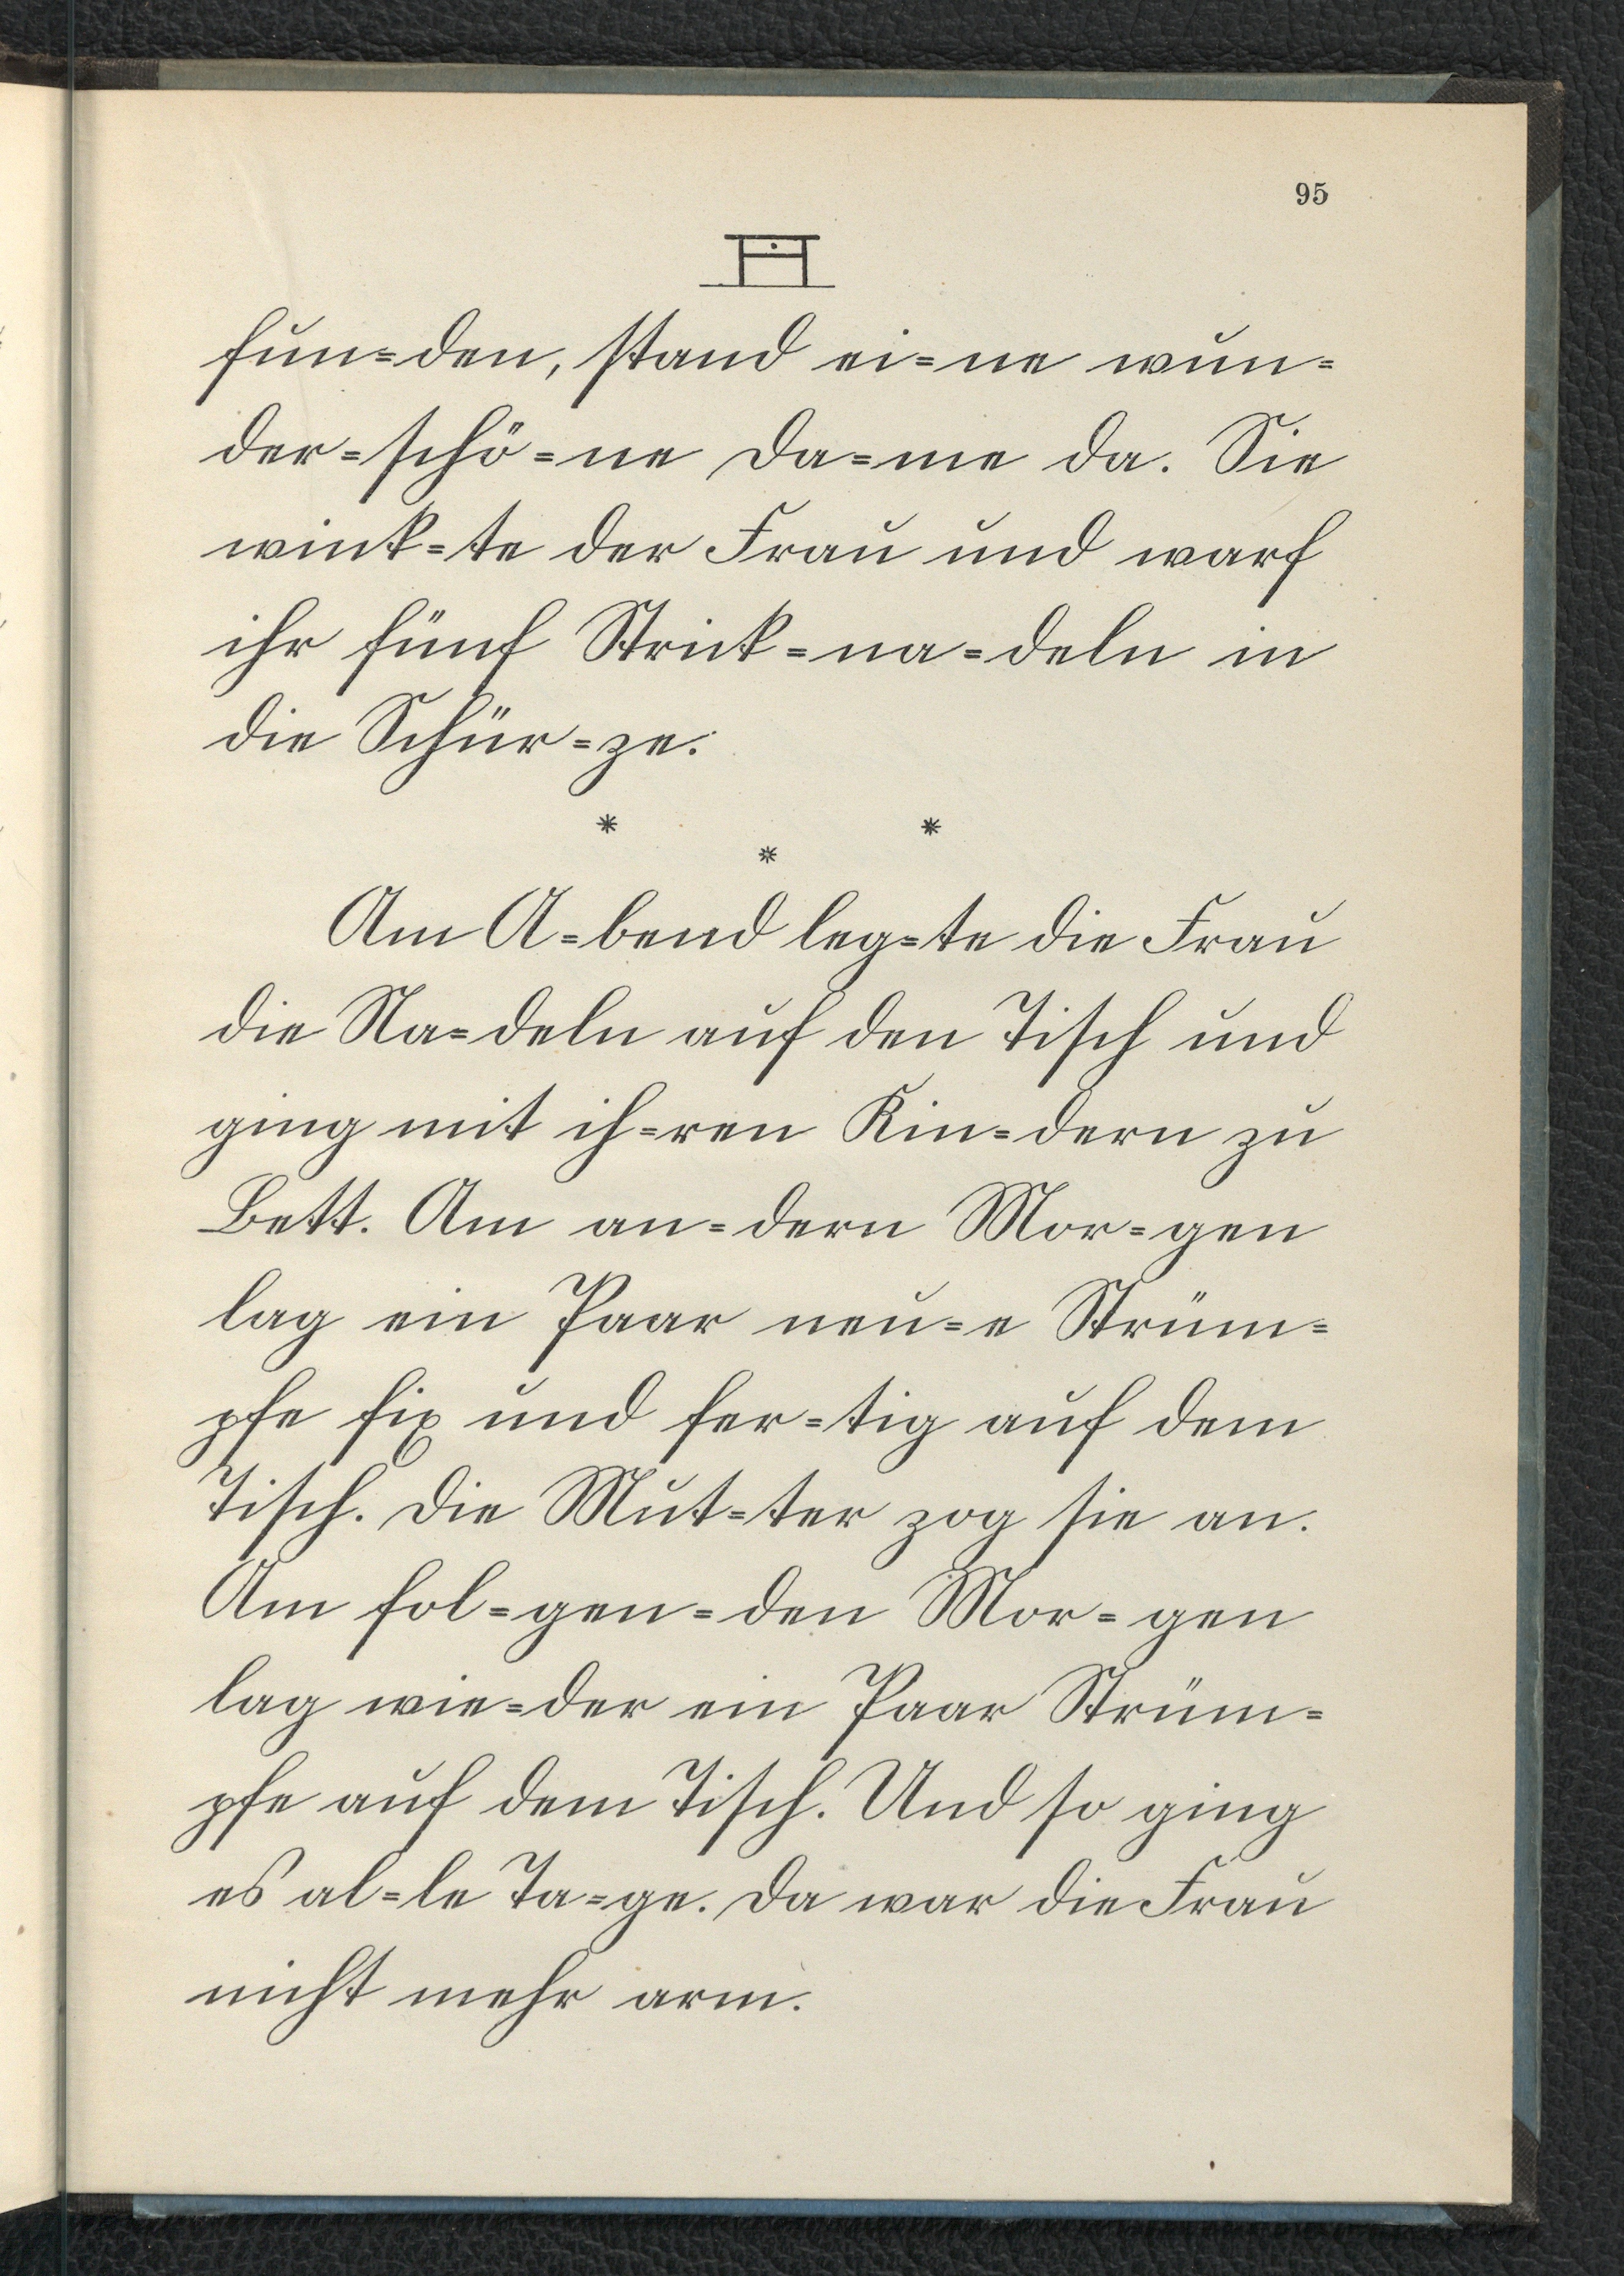 95
fun=den, stand ei=ne wun=
der=schö=ne Da=me da. Sie
wink=te der Frau und warf
ihr fünf Strick=na=deln in
die Schür=ze.
* * *
Am A=bend leg=te die Frau
die Na=deln auf den Tisch und
ging mit ih=ren Kin=dern zu
Bett. Am an=dern Mor=gen
lag ein Paar neu=e Strüm=
pfe fix und fer=tig auf dem
Tisch. Die Mut=ter zog sie an.
Am fol=gen=den Mor=gen
lag wie=der ein Paar Strüm=
pfe auf dem Tisch. Und so ging
es al=le Ta=ge. Da war die Frau
nicht mehr arm.